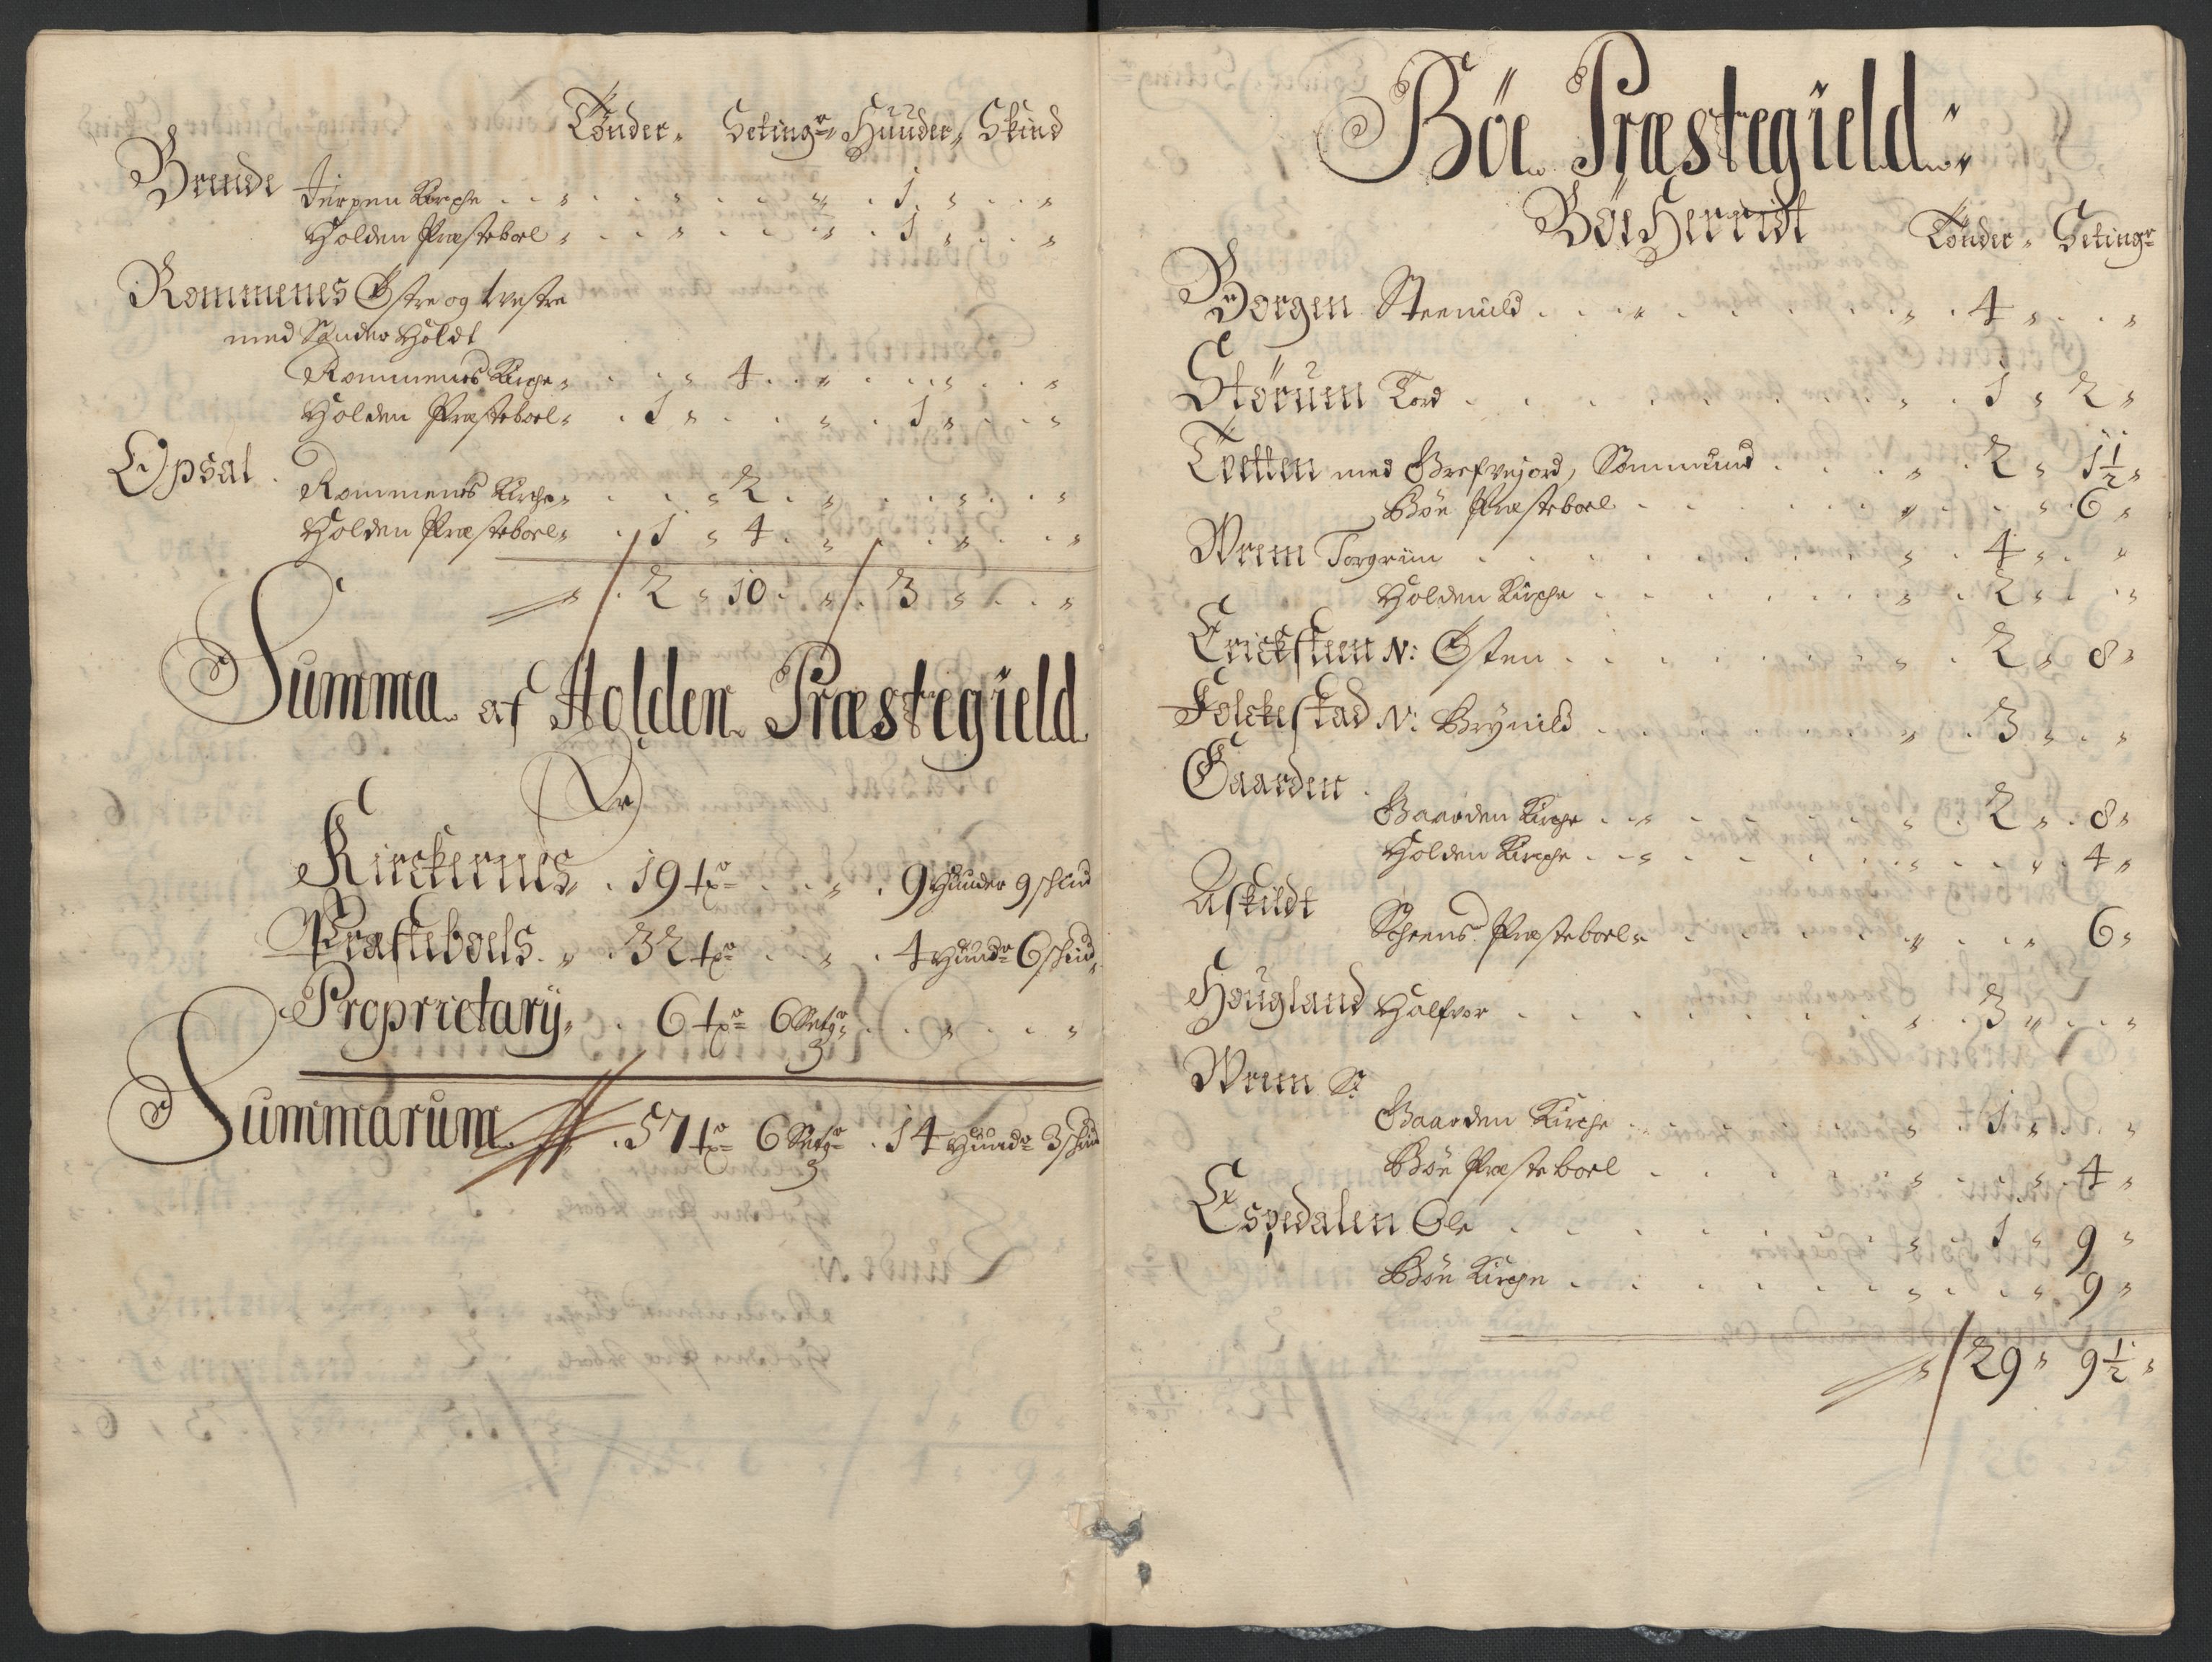 Tönder Setingr Hünder Skind
Brende Jerpen Kirche 1
Holden Præsteboel 1
Rommenes Østre og Westre
med Sønder Holdt
Rommenes Kirche 4
Holden Præsteboel 1 1
Opsal
Rommenes Kirche 2
Holden Præsteboel 1 4
2 10 3
Summa af Holden Præstegield
Kirckernes 19 tr 9 Hünder 9 schind
Præsteboels 32 tr 4 Hündr 6 schind
Proprietarÿ 6 tr 6 Setgr
Summarum 57 tr 6 Setgr 14 Hündr 3 schin
Böe Præstegield
Böe Herridt Tönder Setingr
Borgen Steenuld 4
Störum Tord 1 2
Tvetten med Grefvejord, Sommund 2 1 1/2
Böe Præsteboel 6
Wrem Torgrim 4
Holden Kirche 2
Erichsteen N: Østen 2 8
Folckestad N: Brÿnild 3
Gaarden
Gaarden Kirche 2 8
Holden Kirche 4
Askildt
Scheens Præsteboel 6
Hougland Halfvor 3
Wrem Sr
Gaarden Kirche 1
Böe Præsteboel 4
Espedalen Ole 1 9
Böe Kirche 9
29 9 1/2